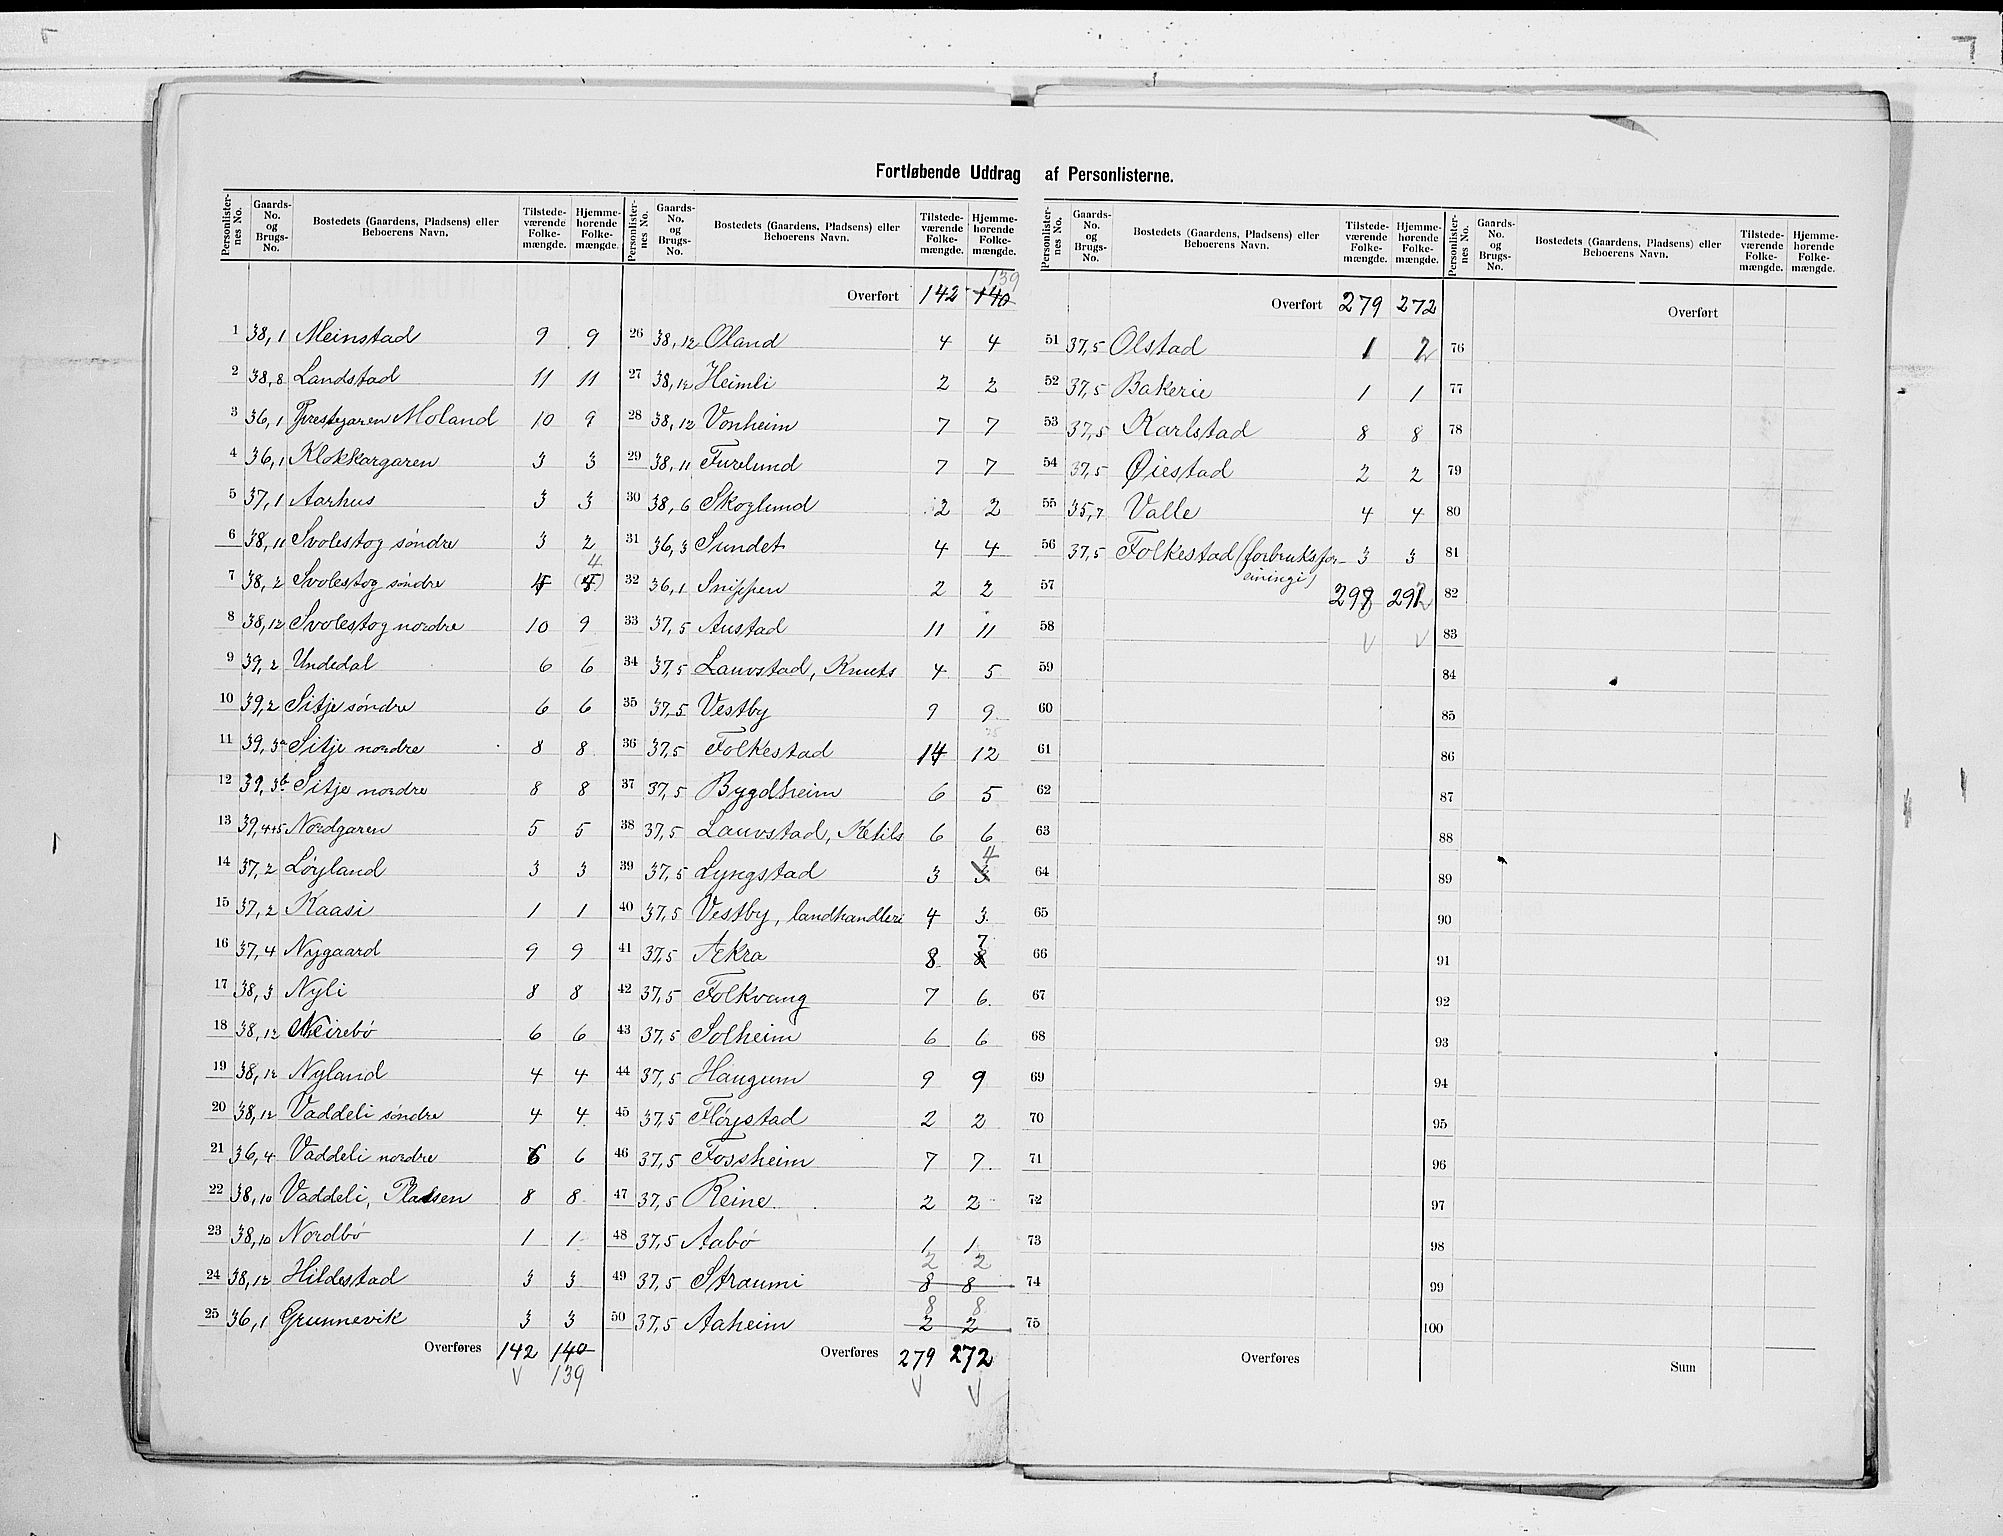 Fortløbende Uddrag af Personlisterne.
Personlister-nes No. Gaards-No. og Brugs-No. Bostedets (Gaardens, Pladsens) eller Beboerens Navn. Tilstede-værende Folke-mængde. Hjemme-hørende Folke-mængde.
1 38,1 Meinstad 9 9
2 38,8 Landstad 11 11
3 36,1 Prestgaren Moland 10 9
4 36,1 Klokkargaren 3 3
5 37,1 Aarhus 3 3
6 38,11 Svolestog søndre 3 2
4
7 38,2 Svolestog søndre 4 (5)
8 38,12 Svolestog nordre 10 9
9 39,2 Undedal 6 6
10 39,2 Sitje søndre 6 6
11 39,3a Sitje nordre 8 8
12 39,3b Sitje nordre 8 8
13 39,4+5 Nordgaren 5 5
14 37,2 Løyland 3 3
15 37,2 Kaasi 1 1
16 37,4 Nygaard 9 9
17 38,3 Nyli 8 8
18 38,12 Meirebø 6 6
19 38,12 Nyland 4 4
20 38,12 Vaddeli søndre 4 4
21 36,4 Vaddeli nordre 6 6
22 38,10 Vaddeli, Pladsen 8 8
23 38,10 Nordbø 1 1
24 38,12 Hildestad 3 3
25 36,1 Grunnevik 3 3
Overføres 142 140
139
Personlister-nes No. Gaards-No. og Brugs-No. Bostedets (Gaardens, Pladsens) eller Beboerens Navn. Tilstede-værende Folke-mængde. Hjemme-hørende Folke-mængde.
139
Overført 142 140
26 38,12 Oland 4 4
27 38,12 Heimli 2 2
28 38,12 Vonheim 7 7
29 38,11 Furelund 7 7
30 38,6 Skoglund 2 2
31 36,3 Sundet 4 4
32 36,1 Snippen 2 2
33 37,5 Austad 11 11
34 37,5 Lauvstad, Knuts 4 5
35 37,5 Vestby 9 9
36 37,5 Folkestad 14 12
37 37,5 Bygdheim 6 5
38 37,5 Lauvstad, Ketils 6 6
4
39 37,5 Lyngstad 3 3
40 37,5 Vestby, landhandleri 4 3
7
41 37,5 Aekra 8 8
42 37,5 Folkvang 7 6
43 37,5 Solheim 6 6
44 37,5 Haugum 9 9
45 37,5 Fløystad 2 2
46 37,5 Fossheim 7 7
47 37,5 Reine 2 2
48 37,5 Aabø 1 1
2 2
49 37,5 Straumi 8 8
8 8
50 37,5 Aaheim 2 2
Overføres 279 272
Personlister-nes No. Gaards-No. og Brugs-No. Bostedets (Gaardens, Pladsens) eller Beboerens Navn. Tilstede-værende Folke-mængde. Hjemme-hørende Folke-mængde.
Overført 279 272
51 37,5 Olstad 1 2
52 37,5 Bakerie 1 1
53 37,5 Karlstad 8 8
54 37,5 Øiestad 2 2
55 35,7 Valle 4 4
56 37,5 Folkestad (forbruksfor- 3 3
eining i)
57 298 292
58
59
60
61
62
63
64
65
66
67
68
69
70
71
72
73
74
75
Overføres
Personlister-nes No. Gaards-No. og Brugs-No. Bostedets (Gaardens, Pladsens) eller Beboerens Navn. Tilstede-værende Folke-mængde. Hjemme-hørende Folke-mængde.
Overført
76
77
78
79
80
81
82
83
84
85
86
87
88
89
90
91
92
93
94
95
96
97
98
99
100
Sum